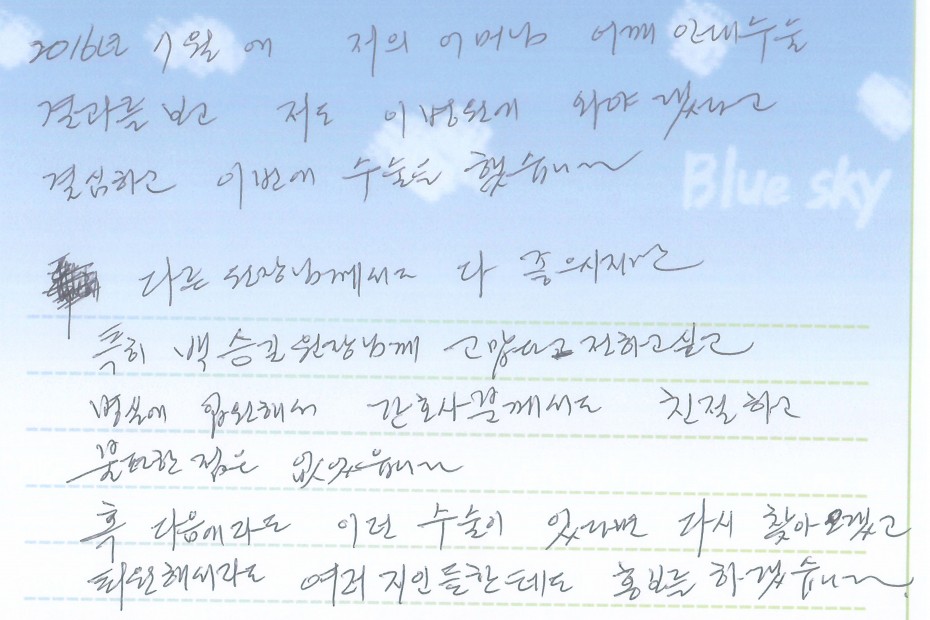 2016년 7월에 저의 어머님 어깨 인대수술
결과를 보고 저도 이 병원에 와야 겠다고
결심하고 이번에 수술을 했습니다
Blue sky
다른 원장님께서도 다 좋으시지만
특히 백승길 원장님께 고맙다고 전하고 싶고
병실에 입원해서 간호사분께서도 친절하고
불편한 점은 없었습니다
혹 다음에라도 이런 수술이 있다면 다시 찾아오겠고
퇴원해서라도 여러 지인들한테도 홍보를 하겠습니다.